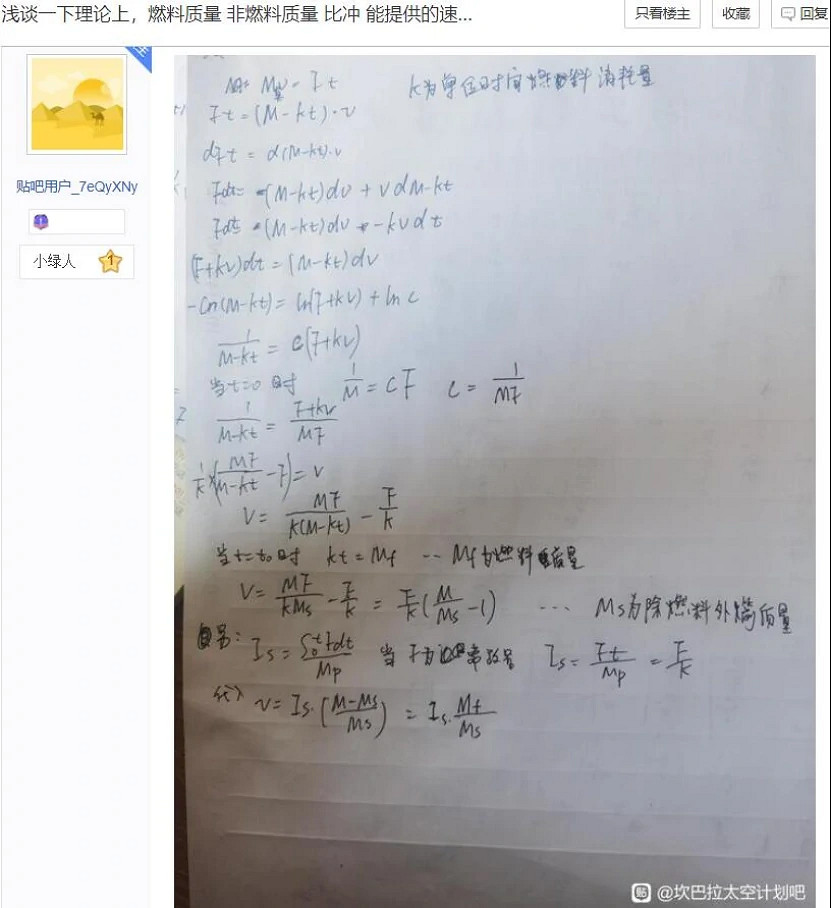 浅谈一下理论上，燃料质量 非燃料质量 比冲 能提供的速...
只看楼主
收藏
回复
贴吧用户_7eQyXNy
小绿人 1
Mv = Ft k为单位时间燃料消耗量
Ft = (M-kt)·v
dFt = d(M-kt)·v
Fdt = (M-kt)dv + v dM-kt
Fdt = (M-kt)dv - kvdt
(F+kv)dt = (M-kt)dv
-ln(M-kt) = ln(F+kv) + ln c
1/(M-kt) = c(F+kv)
当t=0时 1/M = CF C = 1/MF
1/(M-kt) = (F+kv)/MF
1/k(MF/(M-kt) - F) = v
V = MF/k(M-kt) - F/k
当t=t₀时 kt = Mf ... Mf为燃料质量
V = MF/kMs - F/k = F/k(M/Ms - 1) ... Ms为除燃料外质量
另: Is = ∫₀ᵗFdt/Mp 当F为常数时 Is = Ft/Mp = F/k
代入 v = Is·((M-Ms)/Ms) = Is·Mf/Ms
贴 @坎巴拉太空计划吧